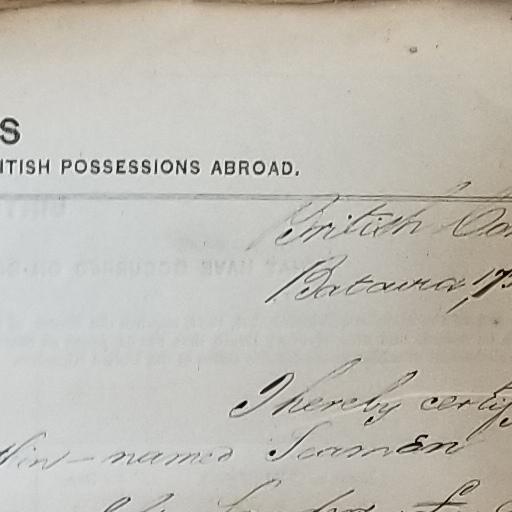 S
ITISH POSSESSIONS ABROAD.
British Con
Batavia, 17
I hereby certif
thin-named Seamen